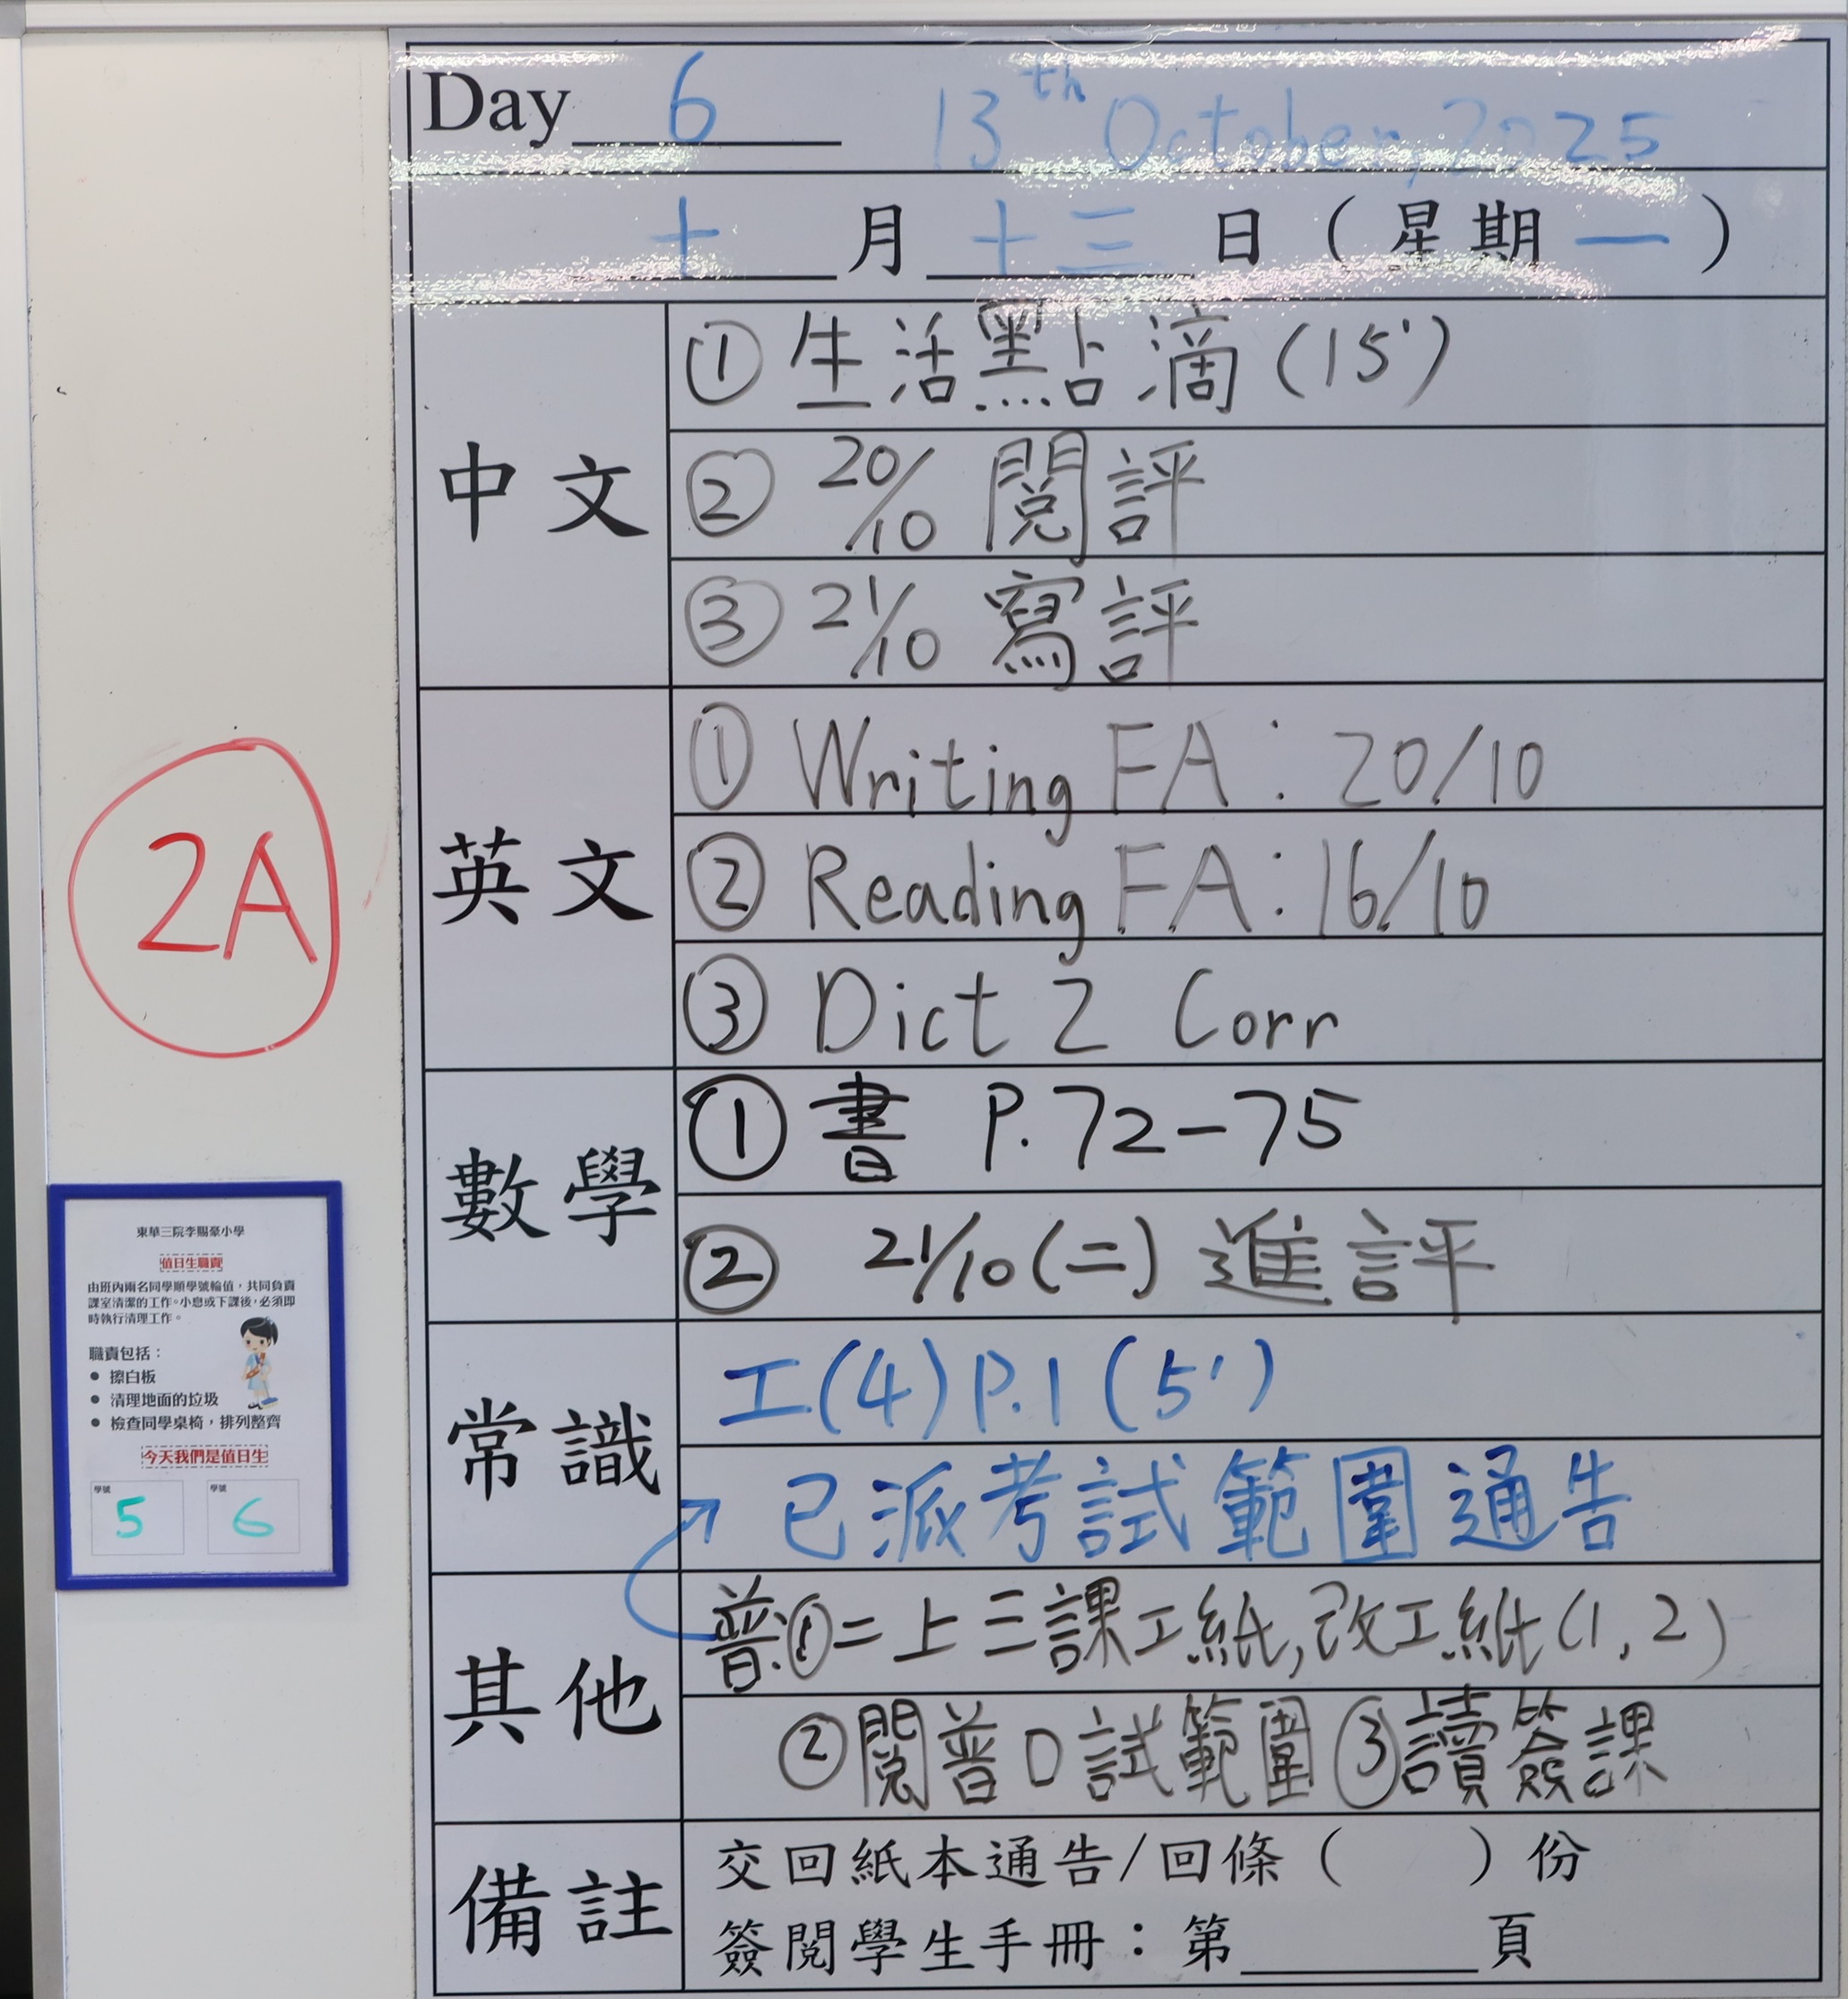 Day 6 13th October, 2025
十 月 十三 日 ( 星期 一 )
中文
① 生活點滴 (15')
② 20/10 閱評
③ 21/10 寫評
英文
① Writing FA : 20/10
② Reading FA : 16/10
③ Dict 2 Corr
數學
① 書 P.72-75
② 21/10 (二) 進評
常識
工(4) P.1 (5')
已派考試範圍通告
其他
普:①二上三課工紙,改工紙(1,2)
②閱普口試範圍 ③讀簽課
備註
交回紙本通告/回條 ( ) 份
簽閱學生手冊:第 頁
2A
東華三院李賜豪小學
值日生職責
由班內兩名同學順學號輪值,共同負責
課室清潔的工作。小息或下課後,必須即
時執行清理工作。
職責包括:
● 擦白板
● 清理地面的垃圾
● 檢查同學桌椅,排列整齊
今天我們是值日生
學號 學號
5 6